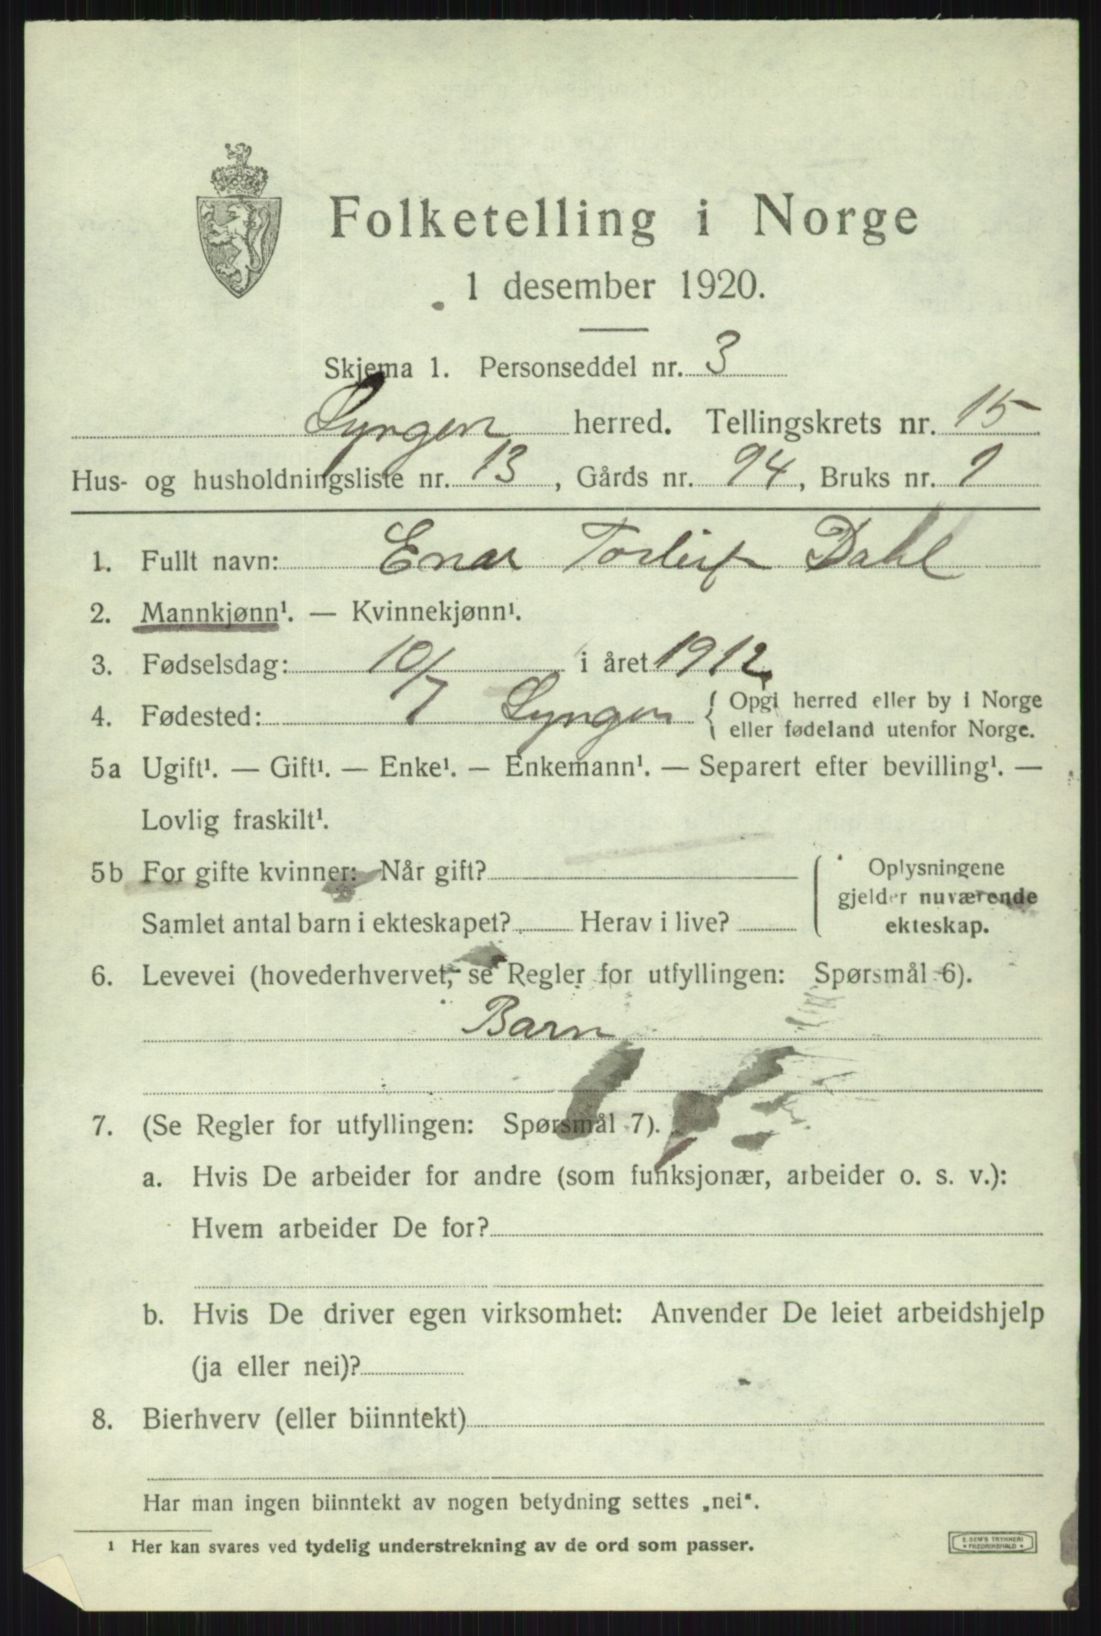 Folketelling i Norge
1 desember 1920.
Skjema 1. Personseddel nr. 3
Lyngen herred. Tellingskrets nr. 15
Hus- og husholdningsliste nr. 13, Gårds nr. 94, Bruks nr. 9
1. Fullt navn: Enar Torleif Dahl
2. Mannkjønn¹. — Kvinnekjønn¹.
3. Fødselsdag: 10/7 i året 1912
4. Fødested: Lyngen { Opgi herred eller by i Norge
eller fødeland utenfor Norge.
5a Ugift¹. — Gift¹. — Enke¹. — Enkemann¹. — Separert efter bevilling¹. —
Lovlig fraskilt¹.
5b For gifte kvinner: Når gift?
Samlet antal barn i ekteskapet? Herav i live?
( Oplysningene
gjelder nuværende
ekteskap.
6. Levevei (hovederhvervet, se Regler for utfyllingen: Spørsmål 6).
Barn
7. (Se Regler for utfyllingen: Spørsmål 7).
a. Hvis De arbeider for andre (som funksjonær, arbeider o. s. v.):
Hvem arbeider De for?
b. Hvis De driver egen virksomhet: Anvender De leiet arbeidshjelp
(ja eller nei)?
8. Bierhverv (eller biinntekt)
Har man ingen biinntekt av nogen betydning settes „nei“.
¹ Her kan svares ved tydelig understrekning av de ord som passer.
E. SEM'S TRYKKERI
• FREDRIKSHALD •